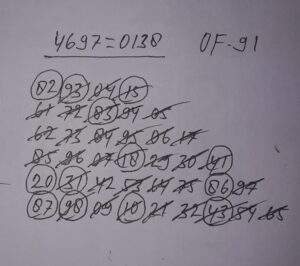 4697=0138 OF-91
82 93 04 15
61 72 83 94 05
62 73 84 95 06 17
85 96 07 18 29 30 41
20 31 42 53 64 75 86 97
87 98 09 10 21 32 43 54 65